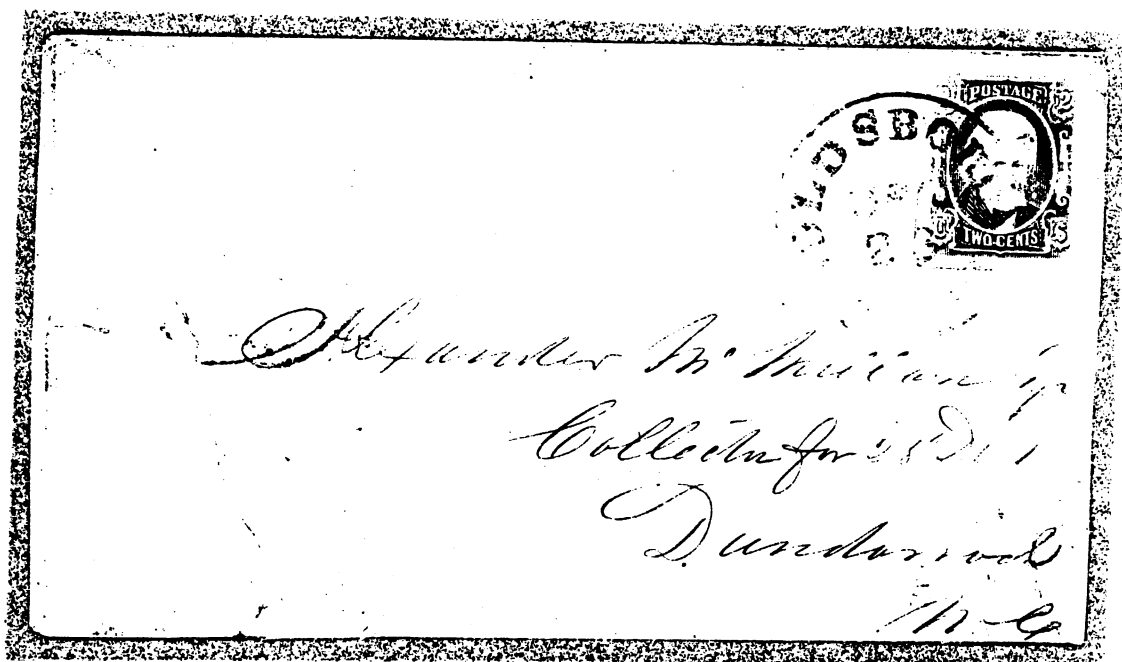 POSTAGE
2
TWO CENTS
Alexander Mc Millan
Collector for
Dundarrach
N C